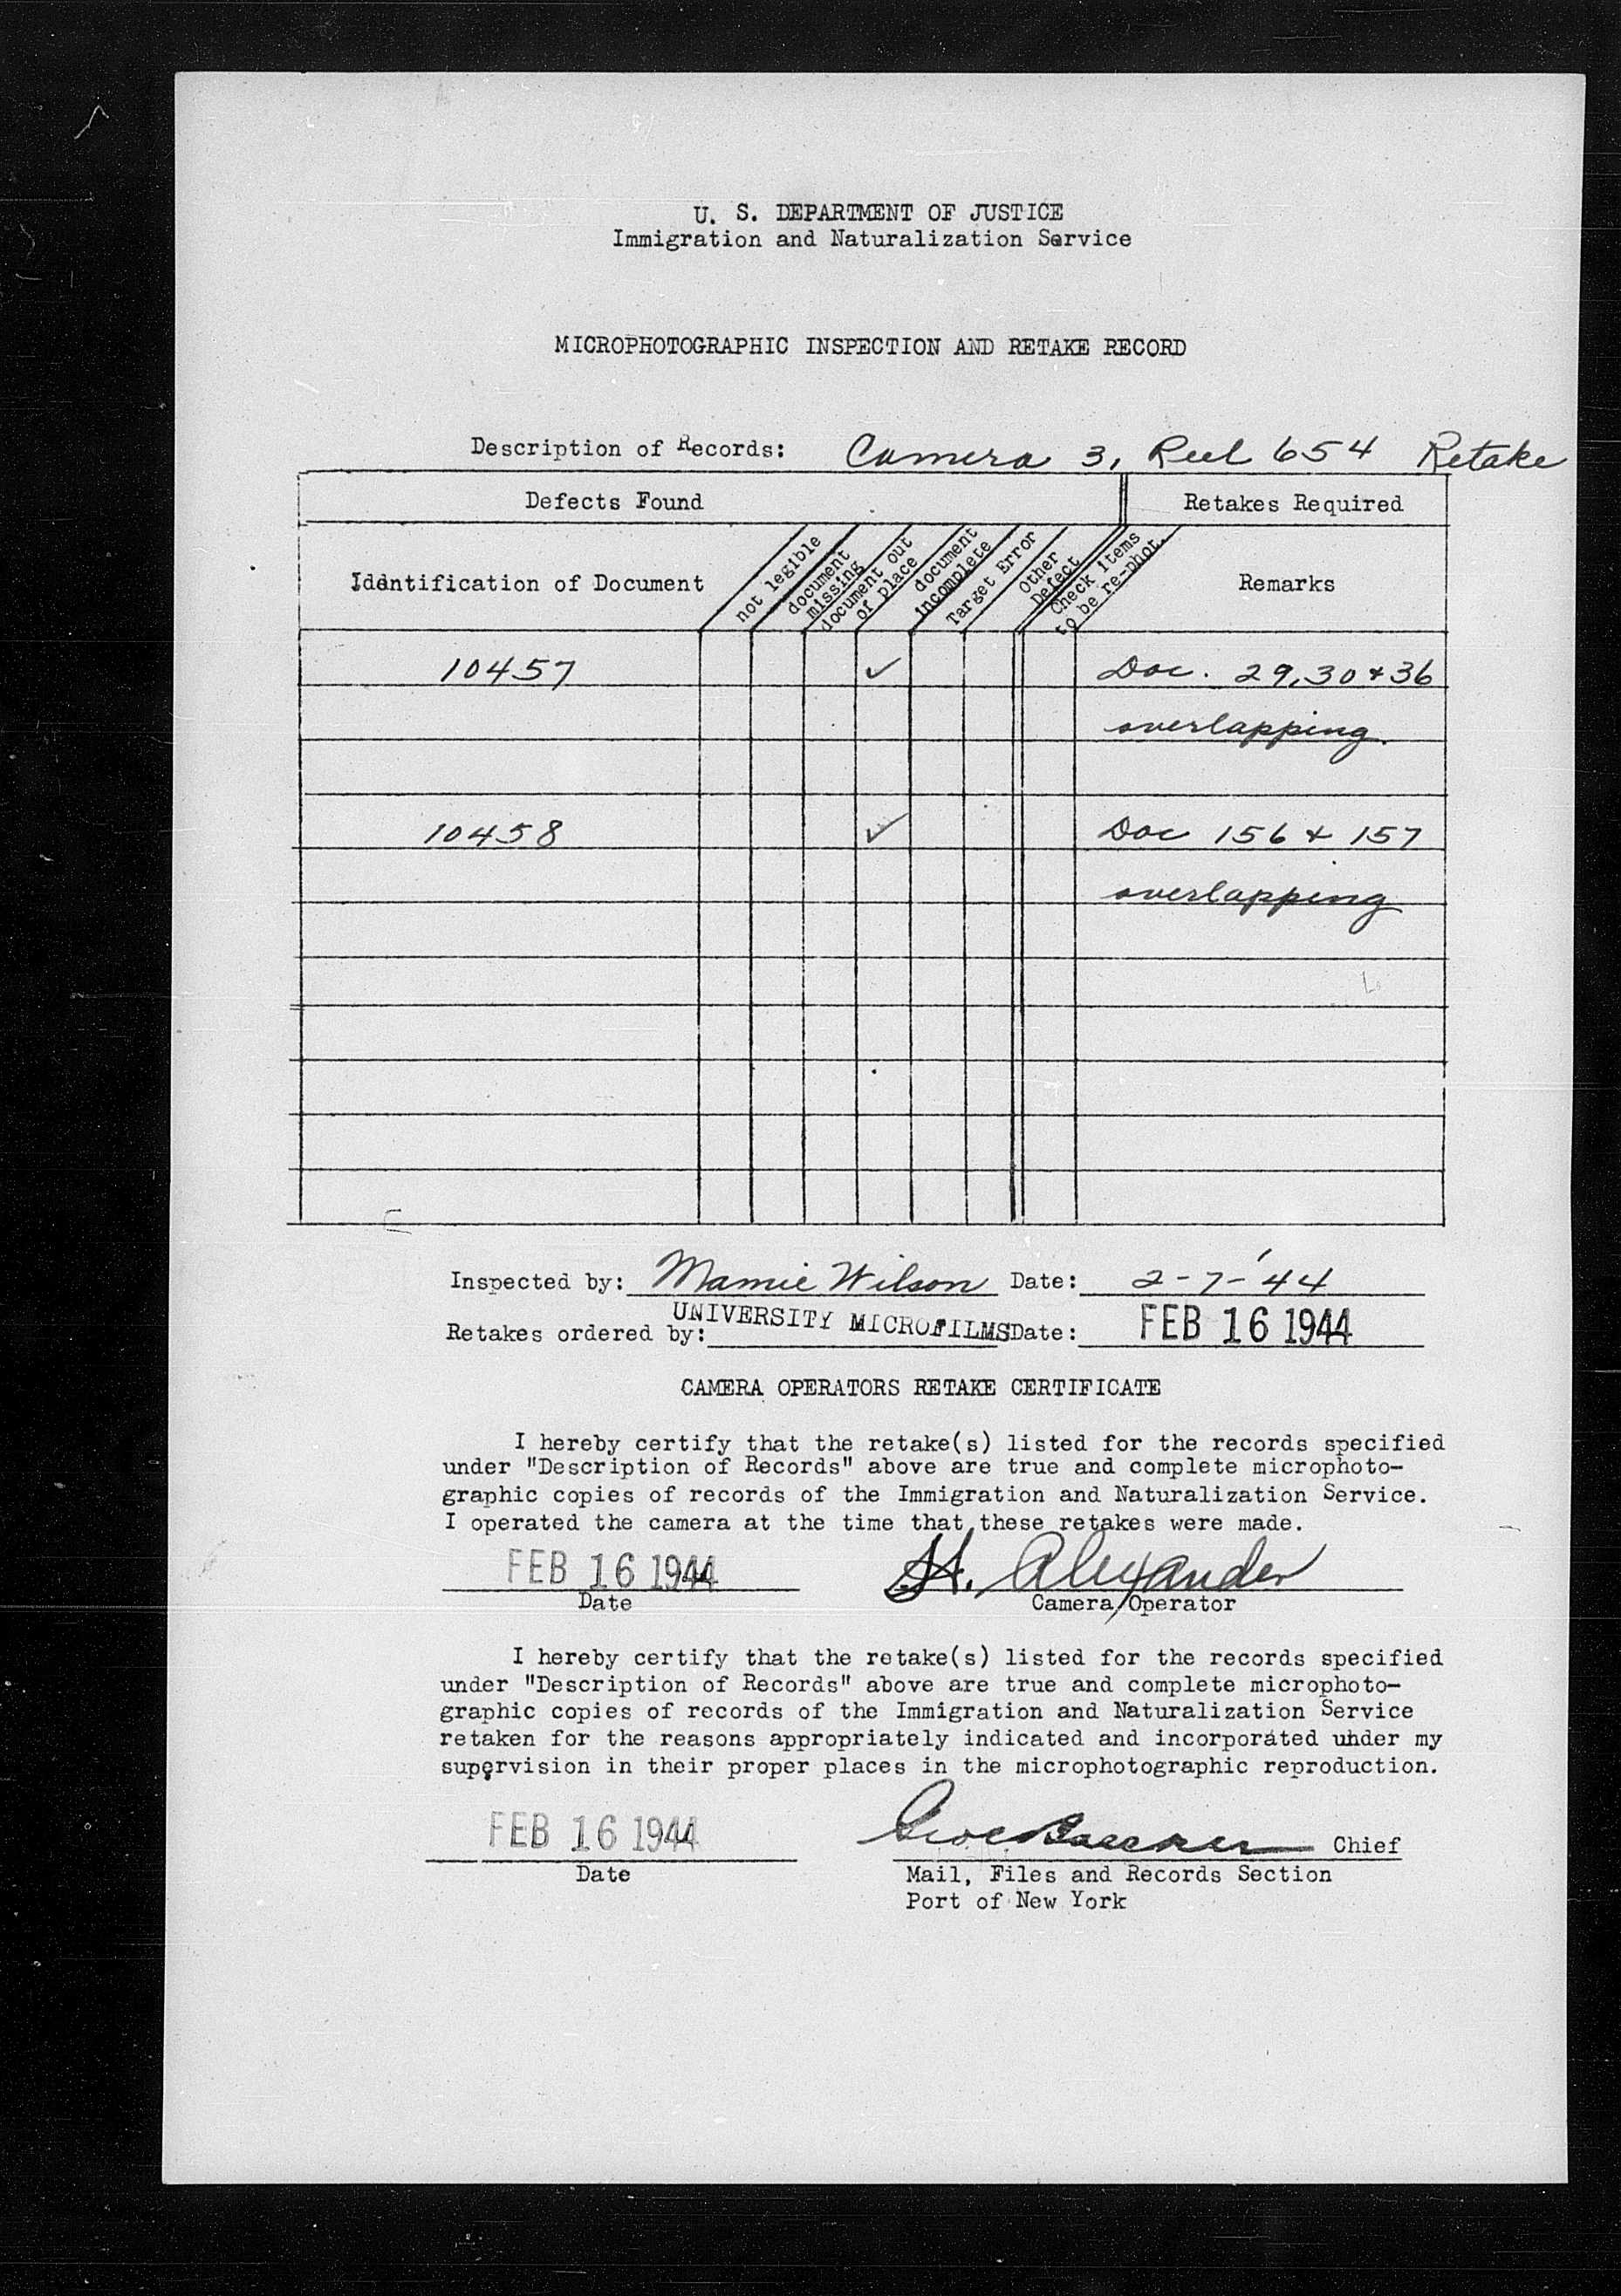 U. S. DEPARTMENT OF JUSTICE
Immigration and Naturalization Service
MICROPHOTOGRAPHIC INSPECTION AND RETAKE RECORD
Description of Records: Camera 3, Reel 654 Retake
Defects Found Retakes Required
Identification of Document
not legible
document missing
document out of place
document incomplete
Target Error
Other Defect
Check items to be re-phot.
Remarks
10457 ✓ Doc. 29,30 + 36
overlapping.
10458 ✓ Doc 156 + 157
overlapping
Inspected by: Mamie Wilson Date: 2-7-'44
Retakes ordered by: UNIVERSITY MICROFILMS Date: FEB 16 1944
CAMERA OPERATORS RETAKE CERTIFICATE
I hereby certify that the retake(s) listed for the records specified
under "Description of Records" above are true and complete microphoto-
graphic copies of records of the Immigration and Naturalization Service.
I operated the camera at the time that these retakes were made.
FEB 16 1944 H. Alexander
Date Camera Operator
I hereby certify that the retake(s) listed for the records specified
under "Description of Records" above are true and complete microphoto-
graphic copies of records of the Immigration and Naturalization Service
retaken for the reasons appropriately indicated and incorporated under my
supervision in their proper places in the microphotographic reproduction.
FEB 16 1944 Chief
Date Mail, Files and Records Section
Port of New York